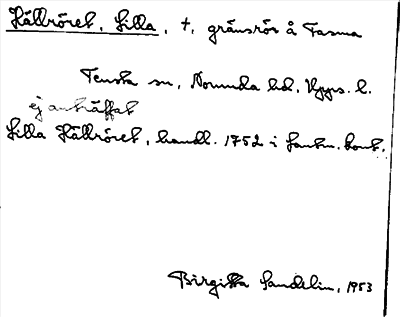 Hällröret, Lilla, +, gränsrös å Fasma
Tensta sn, Norunda hd, Upps. l.
ej anträffat
Lilla Hällröret, handl. 1752 i Lantm. kont.
Birgitta Sandelin, 1953